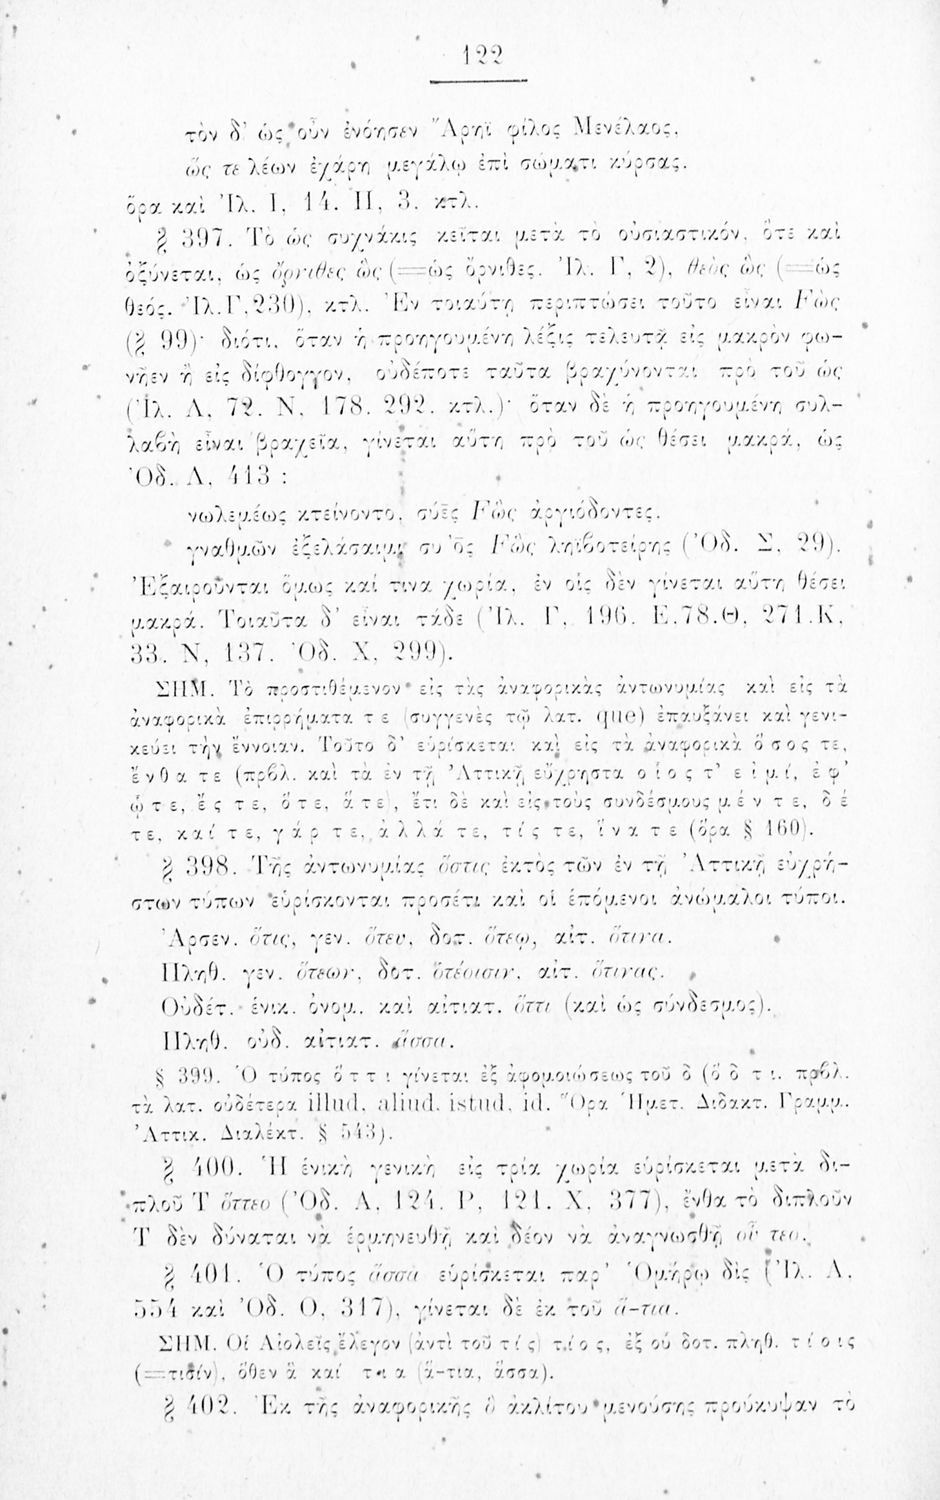 122
τὸν δ' ὡς οὖν ἐνόησεν Ἄρηϊ φίλος Μενέλαος,
ὥς τε λέων ἐχάρη μεγάλῳ ἐπὶ σώματι κύρσας.
ὅρα καὶ Ἰλ. Ι, 14. Π, 3. κτλ.
§ 397. Τὸ ὡς συχνάκις κεῖται μετὰ τὸ οὐσιαστικόν, ὅτε καὶ
ὀξύνεται, ὡς ὄρνιθες ὣς (=ὡς ὄρνιθες. Ἰλ. Γ, 2), θεὸς ὣς (=ὡς
θεός. Ἰλ.Γ,230), κτλ. Ἐν τοιαύτῃ περιπτώσει τοῦτο εἶναι Fὼς
(§ 99)· διότι, ὅταν ἡ προηγουμένη λέξις τελευτᾷ εἰς μακρὸν φω-
νῆεν ἢ εἰς δίφθογγον, οὐδέποτε ταῦτα βραχύνονται πρὸ τοῦ ὡς
(Ἰλ. Λ, 72. Ν, 178. 292. κτλ.)· ὅταν δὲ ἡ προηγουμένη συλ-
λαβὴ εἶναι βραχεῖα, γίνεται αὕτη πρὸ τοῦ ὡς θέσει μακρά, ὡς
Ὀδ. Λ, 413 :
νωλεμέως κτείνοντο, σύες Fὼς ἀργιόδοντες.
γναθμῶν ἐξελάσαιμι συὸς Fὼς ληϊβοτείρης (Ὀδ. Σ, 29).
Ἐξαιροῦνται ὅμως καί τινα χωρία, ἐν οἷς δὲν γίνεται αὕτη θέσει
μακρά. Τοιαῦτα δ' εἶναι τάδε (Ἰλ. Γ, 196. Ε,78.Θ, 271.Κ,
33. Ν, 137. Ὀδ. Χ, 299).
ΣΗΜ. Τὸ προστιθέμενον εἰς τὰς ἀναφορικὰς ἀντωνυμίας καὶ εἰς τὰ
ἀναφορικὰ ἐπιρρήματα τε (συγγενὲς τῷ λατ. que) ἐπαυξάνει καὶ γενι-
κεύει τὴν ἔννοιαν. Τοῦτο δ' εὑρίσκεται καὶ εἰς τὰ ἀναφορικὰ ὅσος τε,
ἔνθα τε (πρβλ. καὶ τὰ ἐν τῇ Ἀττικῇ εὔχρηστα οἷος τ' εἰμί, ἐφ'
ᾧ τε, ἔς τε, ὅτε, ἅτε), ἔτι δὲ καὶ εἰς τοὺς συνδέσμους μέν τε, δέ
τε, καί τε, γάρ τε, ἀλλά τε, τίς τε, ἵνα τε (ὅρα § 160).
§ 398. Τῆς ἀντωνυμίας ὅστις ἐκτὸς τῶν ἐν τῇ Ἀττικῇ εὐχρή-
στων τύπων εὑρίσκονται προσέτι καὶ οἱ ἑπόμενοι ἀνώμαλοι τύποι.
Ἀρσεν. ὅτις, γεν. ὅτευ, δοτ. ὅτεῳ, αἰτ. ὅτινα.
Πληθ. γεν. ὅτεων, δοτ. ὁτέοισιν, αἰτ. ὅτινας.
Οὐδέτ. ἑνικ. ὀνομ. καὶ αἰτιατ. ὅττι (καὶ ὡς σύνδεσμος).
Πληθ. οὐδ. αἰτιατ. ἅσσα.
§ 399. Ὁ τύπος ὅττι γίνεται ἐξ ἀφομοιώσεως τοῦ δ (ὅδ τι. πρβλ.
τὰ λατ. οὐδέτερα illud, aliud, istud, id. Ὅρα Ἡμετ. Διδακτ. Γραμμ.
Ἀττικ. Διαλέκτ. § 543).
§ 400. Ἡ ἑνικὴ γενικὴ εἰς τρία χωρία εὑρίσκεται μετὰ δι-
πλοῦ Τ ὅττεο (Ὀδ. Α, 124. Ρ, 121. Χ, 377), ἔνθα τὸ διπλοῦν
Τ δὲν δύναται νὰ ἑρμηνευθῇ καὶ δέον νὰ ἀναγνωσθῇ οὗ τεο.
§ 401. Ὁ τύπος ἅσσα εὑρίσκεται παρ' Ὁμήρῳ δὶς (Ἰλ. Α,
554 καὶ Ὀδ. Ο, 317), γίνεται δὲ ἐκ τοῦ ἅ-τια.
ΣΗΜ. Οἱ Αἰολεῖς ἔλεγον (ἀντὶ τοῦ τίς) τίος, ἐξ οὗ δοτ. πληθ. τίοις
(=τισίν), ὅθεν ἃ καί τια (ἅ-τια, ἅσσα).
§ 402. Ἐκ τῆς ἀναφορικῆς ὁ ἀκλίτου μενούσης προύκυψαν τὸ